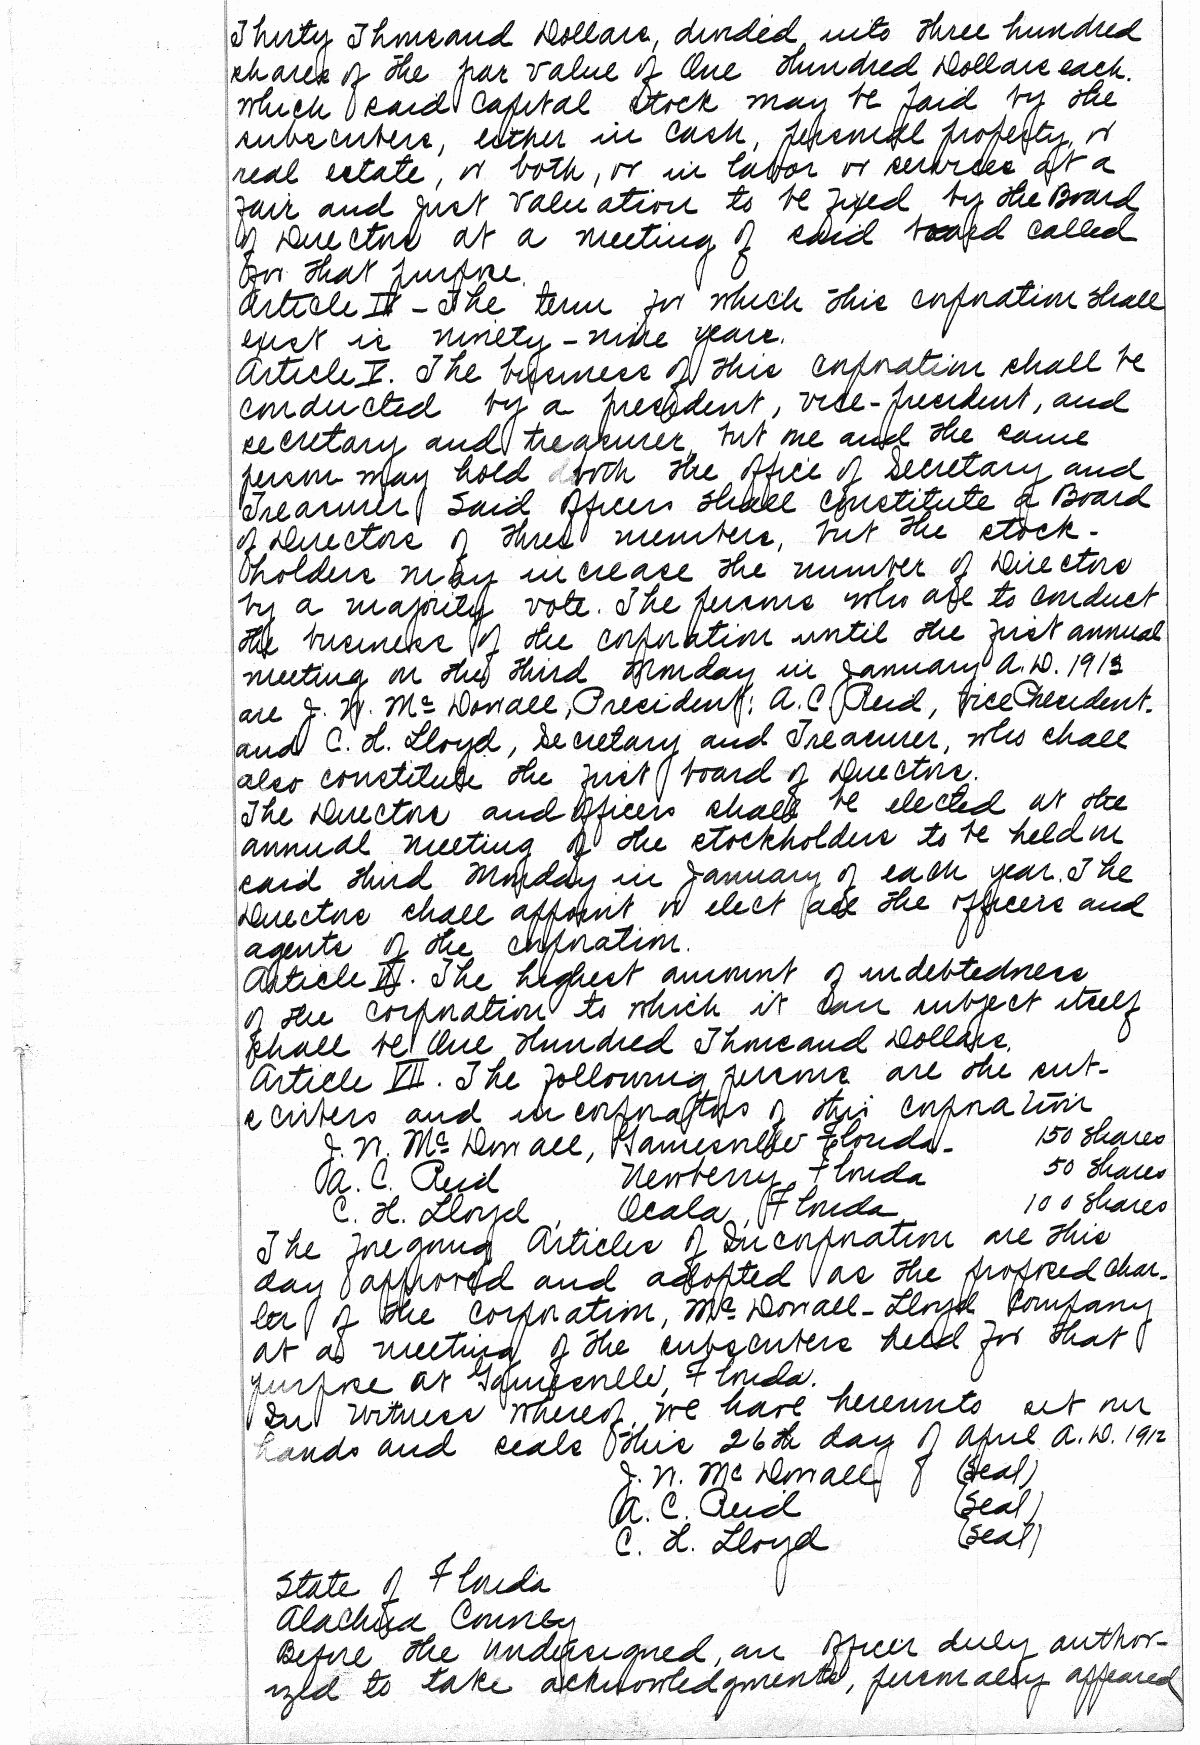 Thirty Thousand Dollars, divided into three hundred
shares of the par value of One Hundred Dollars each.
Which said capital stock may be paid by the
subscribers, either in cash, personal property, or
real estate, or both, or in labor or services at a
fair and just valuation to be fixed by the Board
of Directors at a meeting of said board called
for that purpose.
Article IV - The term for which this corporation shall
exist is ninety-nine years.
Article V. The business of this corporation shall be
conducted by a president, vice-president, and
secretary and treasurer, but one and the same
person may hold both the office of Secretary and
Treasurer. Said officers shall constitute a Board
of Directors of three members, but the stock-
holders may increase the number of Directors
by a majority vote. The persons who are to conduct
the business of the corporation until the first annual
meeting on the third Monday in January A.D. 1913
are J. N. Mc Dowall, President; A. C. Reid, Vice President.
and C. H. Lloyd, Secretary and Treasurer, who shall
also constitute the first board of Directors.
The Directors and officers shall be elected at the
annual meeting of the stockholders to be held on
said third Monday in January of each year. The
Directors shall appoint or elect all the officers and
agents of the corporation.
Article VI. The highest amount of indebtedness
of the corporation to which it can subject itself
shall be One Hundred Thousand Dollars.
Article VII. The following persons are the sub-
scribers and incorporators of this corporation
J. N. Mc Dowall, Gainesville Florida - 150 shares
A. C. Reid Newberry, Florida 50 shares
C. H. Lloyd, Ocala, Florida 100 shares
The foregoing Articles of Incorporation are this
day approved and adopted as the proposed char-
ter of the corporation, Mc Dowall-Lloyd Company
at a meeting of the subscribers held for that
purpose at Gainesville, Florida.
In Witness Whereof, we have hereunto set our
hands and seals this 26th day of April A.D. 1912
J. N. Mc Dowall (Seal)
A. C. Reid (Seal)
C. H. Lloyd (Seal)
State of Florida
Alachua County
Before the undersigned, an officer duly author-
ized to take acknowledgments, personally appeared